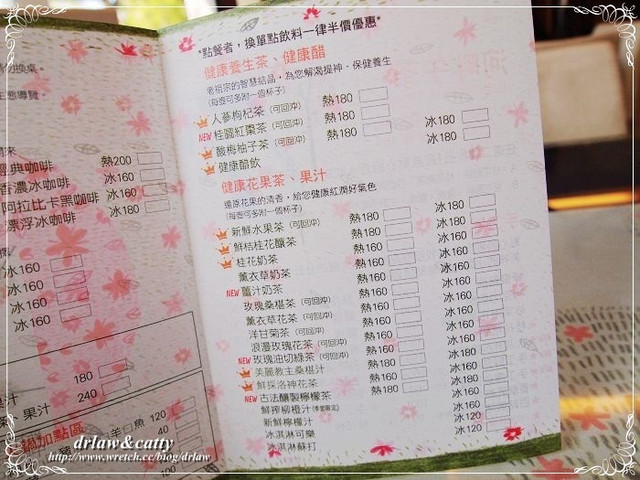 勿換桌
生態導覽
經典咖啡 熱200
香濃冰咖啡 冰160
阿拉比卡黑咖啡 冰160
漂浮冰咖啡 冰180
冰160
冰160
冰160
冰160
180
果汁 240
鍋加點區
120
40
100
*點餐者，換單點飲料一律半價優惠*
健康養生茶、健康醋
老祖宗的智慧結晶，為您解渴提神、保健養生
(每壺可多附一個杯子)
人蔘枸杞茶 (可回沖) 熱180
NEW 桂圓紅棗茶 (可回沖) 熱180
酸梅柚子茶 (可回沖) 熱180 冰180
健康醋飲 冰180
健康花果茶、果汁
還原花果的清香，給您健康紅潤好氣色
(每壺可多附一個杯子)
新鮮水果茶 (可回沖) 熱180 冰180
鮮桔桂花釀茶 熱180 冰180
桂花奶茶 熱160 冰160
薰衣草奶茶 熱160 冰160
NEW 薑汁奶茶 熱160 冰160
玫瑰桑椹茶 (可回沖) 熱160 冰160
薰衣草花茶 (可回沖) 熱160 冰160
洋甘菊茶 (可回沖) 熱160 冰160
浪漫玫瑰花茶 (可回沖) 熱160 冰160
NEW 玫瑰油切綠茶 (可回沖) 熱160 冰160
美麗教主桑椹汁 熱180 冰180
鮮採洛神花茶 熱160 冰160
NEW 古法釀製檸檬茶 熱180 冰180
鮮搾柳橙汁 冰160
新鮮檸檬汁 冰160
冰淇淋可樂 冰120
冰淇淋蘇打 冰120
drlaw&catty
http://www.wretch.cc/blog/drlaw